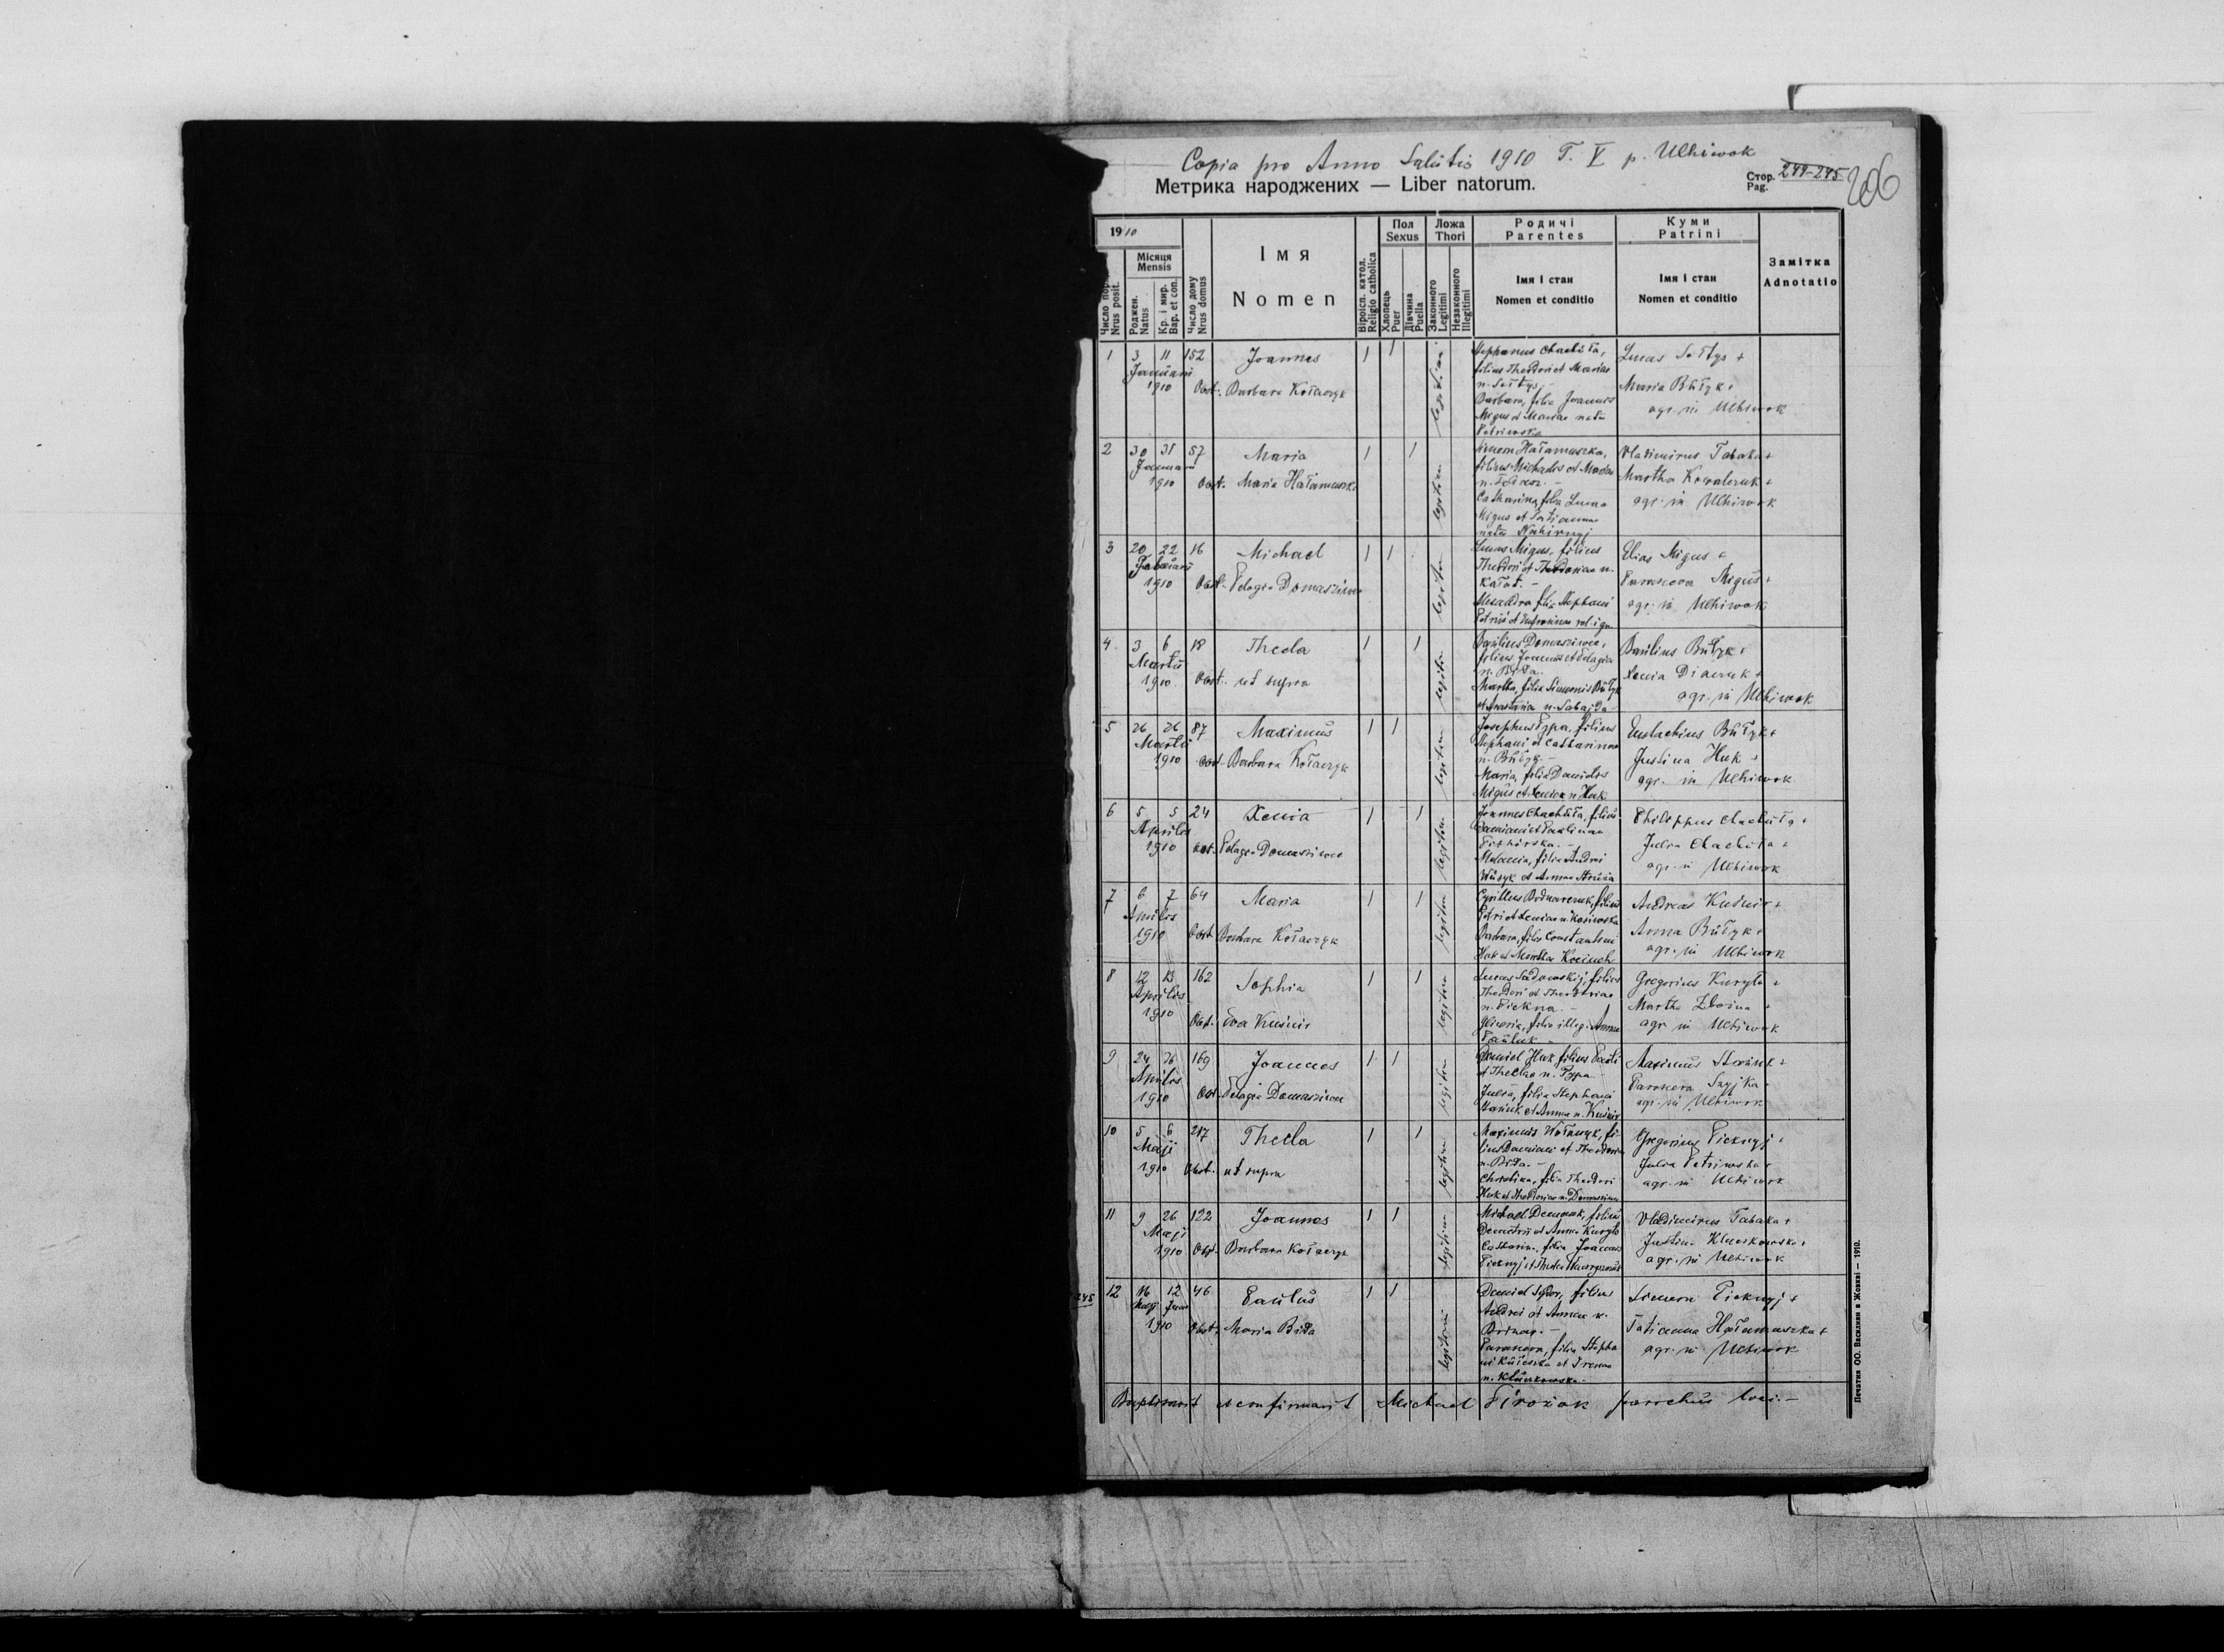 Copia pro Anno Salutis 1910 T. V p. Ulhiwok
Метрика народжених — Liber natorum.
Стор. Pag. 244-245
206
1910
Число пор. Nrus posit.
Місяця Mensis
Роджен. Natus
Кр. і мир. Bap. et con.
Число дому Nrus domus
Імя
Nomen
Віроісп. катол. Religio catholica
Пол Sexus
Хлопець Puer
Дівчина Puella
Ложа Thori
Законного Legitimi
Незаконного Illegitimi
Родичі Parentes
Імя і стан
Nomen et conditio
Куми Patrini
Імя і стан
Nomen et conditio
Замітка
Adnotatio
1 3 11 Januarii 1910 152 Joannes
Obst. Barbara Kołaczyk
1 1 legitimi
Stephanus Chachuła,
filius Theodori et Mariae
n. Sołtys.
Barbara, filia Joannis
Migus et Mariae nata
Petriwska
Lucas Sołtys +
Maria Bułyk +
agr. in Ulhiwok
2 30 31 Januarii 1910 57 Maria
Obst. Maria Hałamuszka
1 1 legitim
Simeon Hałamuszka,
filius Michaelis et Mariae
Catharina, filia Lucae
Migus et Tatiannae
natae Nahirnyj
Vladimirus Tabaka +
Martha Kowalczuk +
agr. in Ulhiwok
3 20 22 Februarii 1910 16 Michael
Obst. Pelagia Domasziwec
1 1 legitim
Lucas Migus, filius
Theodori et Theodoriae n.
Kałat. -
Alexandra filia Stephani
Elias Migus +
Parascova Migus +
agr. in Ulhiwok
4 3 6 Martii 1910 18 Thecla
Obst. ut supra
1 1 legitim
Basilius Domasziwec,
filius Joannis et Pelagia
n. Bida.
Martha, filia Simeonis Bułyk
et Anastasia n. Sabajda
Basilius Bułyk +
Xenia Diaczuk +
agr. in Ulhiwok
5 26 26 Martii 1910 87 Maximus
Obst. Barbara Kołaczyk
1 1 legitim
Josephus Pypa, filius
Stephani et Catharinae
n. Bułyk. -
Maria, filia Danielis
Migus et Xeniae n. Huk
Eustachius Bułyk +
Justina Huk +
agr. in Ulhiwok
6 5 5 Aprilis 1910 24 Xenia
Obst. Pelagia Domasziwec
1 1 legitim
Joannes Chachuła, filius
Damiani et Paulinae
Melania, filia Andrei
Philippus Chachuła +
Julia Chachuła +
agr. in Ulhiwok
7 6 7 Aprilis 1910 64 Maria
Obst. Barbara Kołaczyk
1 1 legitim
Cyrillus Bodnarczuk, filius
Petri et Xeniae n. Kosiwska
Barbara, filia Constantini
Huk et Martha
Andreas Kuśnir +
Anna Bułyk +
agr. in Ulhiwok
8 12 13 Aprilis 1910 162 Sophia
Obst. Eva Kuśnir
1 1 legitim
Lucas Sadowskij, filius
Theodori et Theodoriae
n. Piekna. -
Gliceria, filia illeg. Annae
Pauluk -
Gregorius Kuryło +
Martha
agr. in Ulhiwok
9 24 26 Aprilis 1910 169 Joannes
Obst. Pelagia Domasziwec
1 1 legitim
Daniel Huk filius Pauli
et Theclae n. Pypa. -
Julia, filia Stephani
et Anna n. Kuśnir
Maximus
Parascova Szyjka
agr. in Ulhiwok
10 5 6 Maji 1910 217 Thecla
Obst. ut supra
1 1 legitim
Maximus Wołanyk, fi-
lius Damiani et Theodoria
n. Bida. -
Christina, filia Theodori
Huk et Theodoriae n. Domasziwec
Gregorius Pieknyj +
Julia Petriwska +
agr. in Ulhiwok
11 9 26 Maji 1910 122 Joannes
Obst. Barbara Kołaczyk
1 1 legitim
Michael Demczuk, filius
Demetrii et Anna Kuryło
Catharina, filia Joannis
Pieknyj et Thecla
Vladimirus Tabaka +
Justina Kluczkowska +
agr. in Ulhiwok
245
12 16 Maji 12 Junii 1910 46 Paulus
Obst. Maria Bida
1 1 legitimi
Daniel Sydor, filius
Andrei et Annae n.
Bodnar. -
Parascova, filia Stepha
ni et Irenae
n. Kluczkowska. -
Simeon Pieknyj +
Tatianna Hałamuszka +
agr. in Ulhiwok
Baptisavit et confirmavit Michael Pirożak parochus loci. -
Печатня ОО. Василиян в Жовкві — 1910.